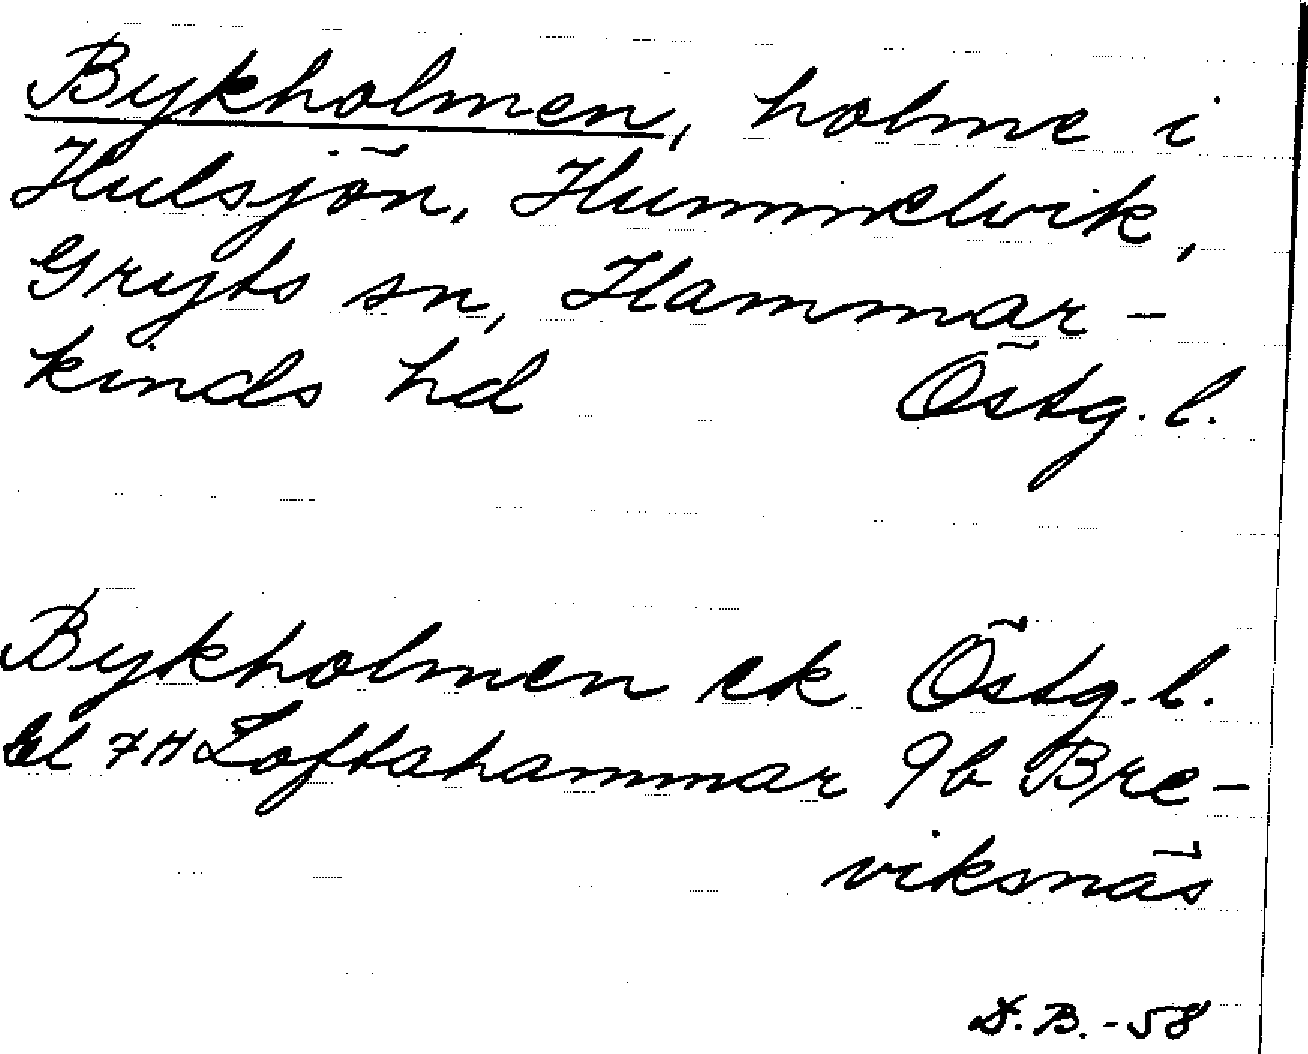 Bykholmen, holme i
Hulsjön, Hummelvik,
Gryts sn, Hammar-
kinds hd Östg. l.
Bykholmen ek Östg. l.
bl 7H Loftahammar 9b Bre-
viksnäs
D.B.-58